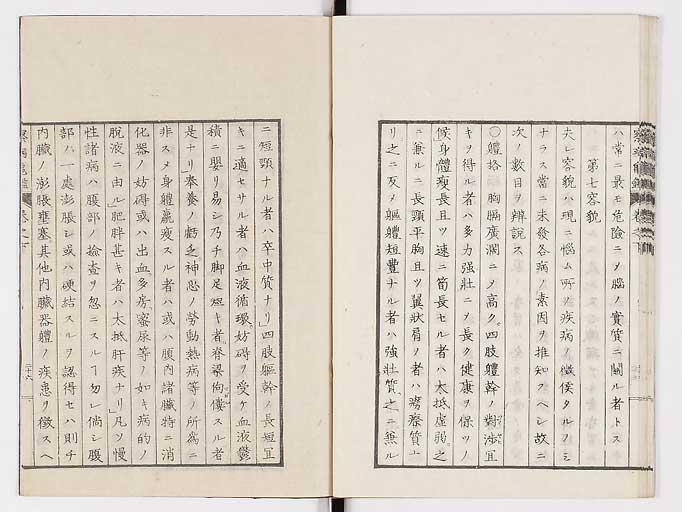 ハ常ニ最モ危険ニ〆脳ノ實質ニ關ル者トス
第七容貌
夫レ容貌ハ現ニ悩ム所ノ疾病ノ徴候タルノミ
ナラス當ニ未發各病ノ素因ヲ推知スヘシ故ニ
次ノ數目ヲ辨説ス
〇軆格 胸膈廣濶ニ〆高ク四肢軆幹ノ對渉宜
キヲ得ル者ハ多力強壯ニ〆長ク健康ヲ保ツノ
候身體瘦長且ツ速ニ筋長セル者ハ大抵虚弱之
ニ兼ルニ長頸平胸且ツ翼狀肩ノ者ハ癆瘵質ナ
リ之ニ反〆軀軆短豊ナル者ハ強壯質之ニ兼ル
ニ短頸ナル者ハ卒中質ナリ」四肢軀幹ノ長短宜
キニ適セサル者ハ血液循環妨碍ヲ受ケ血液鬱
積ニ嬰リ易シ乃チ脚足短キ者脊梁佝僂スル者
是ナリ」奉養ノ虧乏神思ノ勞動熱病等ノ所爲ニ
非スメ身軆羸瘦スル者ハ或ハ腹内諸臓特ニ消
化器ノ妨碍或ハ出血多房蜜尿等ノ如キ病的ノ
脱液ニ由ル」肥胖甚キ者ハ大抵肝疾ナリ」凡ソ慢
性諸病ハ腹部ノ撿查ヲ忽ニスルヿ勿レ倘シ腹
部ハ一處澎脹シ或ハ硬結スルヲ認得セハ則チ
内臓ノ澎脹壅塞其他内臓器軆ノ疾患ヲ徴スヘ